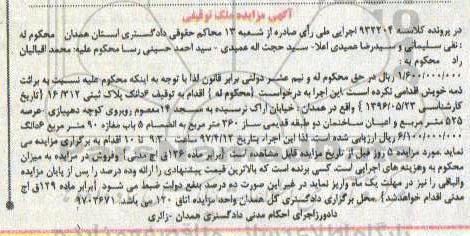 آگهی مزایده ملک توقیفی
در پرونده کلاسه ۹۳۲۲۰۴ اجرایی طی رأی صادره از شعبه ۱۳ محاکم حقوقی دادگستری استان همدان محکوم له
: نقی سلیمانی و سیدرضا عمیدی اعلا- سید حجت اله عمیدی - سید احمد حسینی رسا محکوم علیه: محمد اقبالیان
راد محکوم به :
۱/۶۰۰/۰۰۰/۰۰۰ ریال در حق محکوم له و نیم عشر دولتی برابر قانون لذا با توجه به اینکه محکوم علیه نسبت به برائت
ذمه خویش اقدامی نکرده است، این اجرا به درخواست [محکوم له ] اقدام به توقیف ۶دانگ پلاک ثبتی ۱۶/۳۱۲ [تاریخ
کارشناسی ۱۳۹۶/۰۵/۲۳ ] واقع در همدان : خیابان اراک نرسیده به مسجد ۱۴معصوم روبروی کوچه دهپیازی - عرصه
۵۲۵ متر مربع و اعیان ساختمان دو طبقه قدیمی ساز ۳۶۰ متر مربع به انضمام ۵ باب مغازه ۹۰ متر مربع ۶دانگ
۶/۱۰۰/۰۰۰/۰۰۰ ریال ارزیابی شده است. لذا این اجرا، بتاریخ ۹۷/۴/۱۳ ساعت ۹ تا ۱۰ اقدام به برگزاری مزایده می
نماید .مورد مزایده ۵ روز قبل از تاریخ مزایده قابل مشاهده است [برابر ماده ۱۲۶ق اج مدنی] وفروش در مزایده به میزان
محکوم به وهزینه های اجرایی است. کسی برنده است که بالاترین قیمت پیشنهادی را ارائه وده درصد را پس از پایان مزایده
والباقی را نیز در مهلت یک ماه واریز نماید در غیر این صورت ده درصد بنفع دولت ضبط می شود .[برابر ماده ۱۲۹ق اج
مدنی اقدام خواهدشد] .محل برگزاری دادگستری کل همدان واحد مزایده اتاق ۱۲۰ می باشد. ۹۷۰۳۶۷۱
دادورزاجرای احکام مدنی دادگستری همدان -زائری